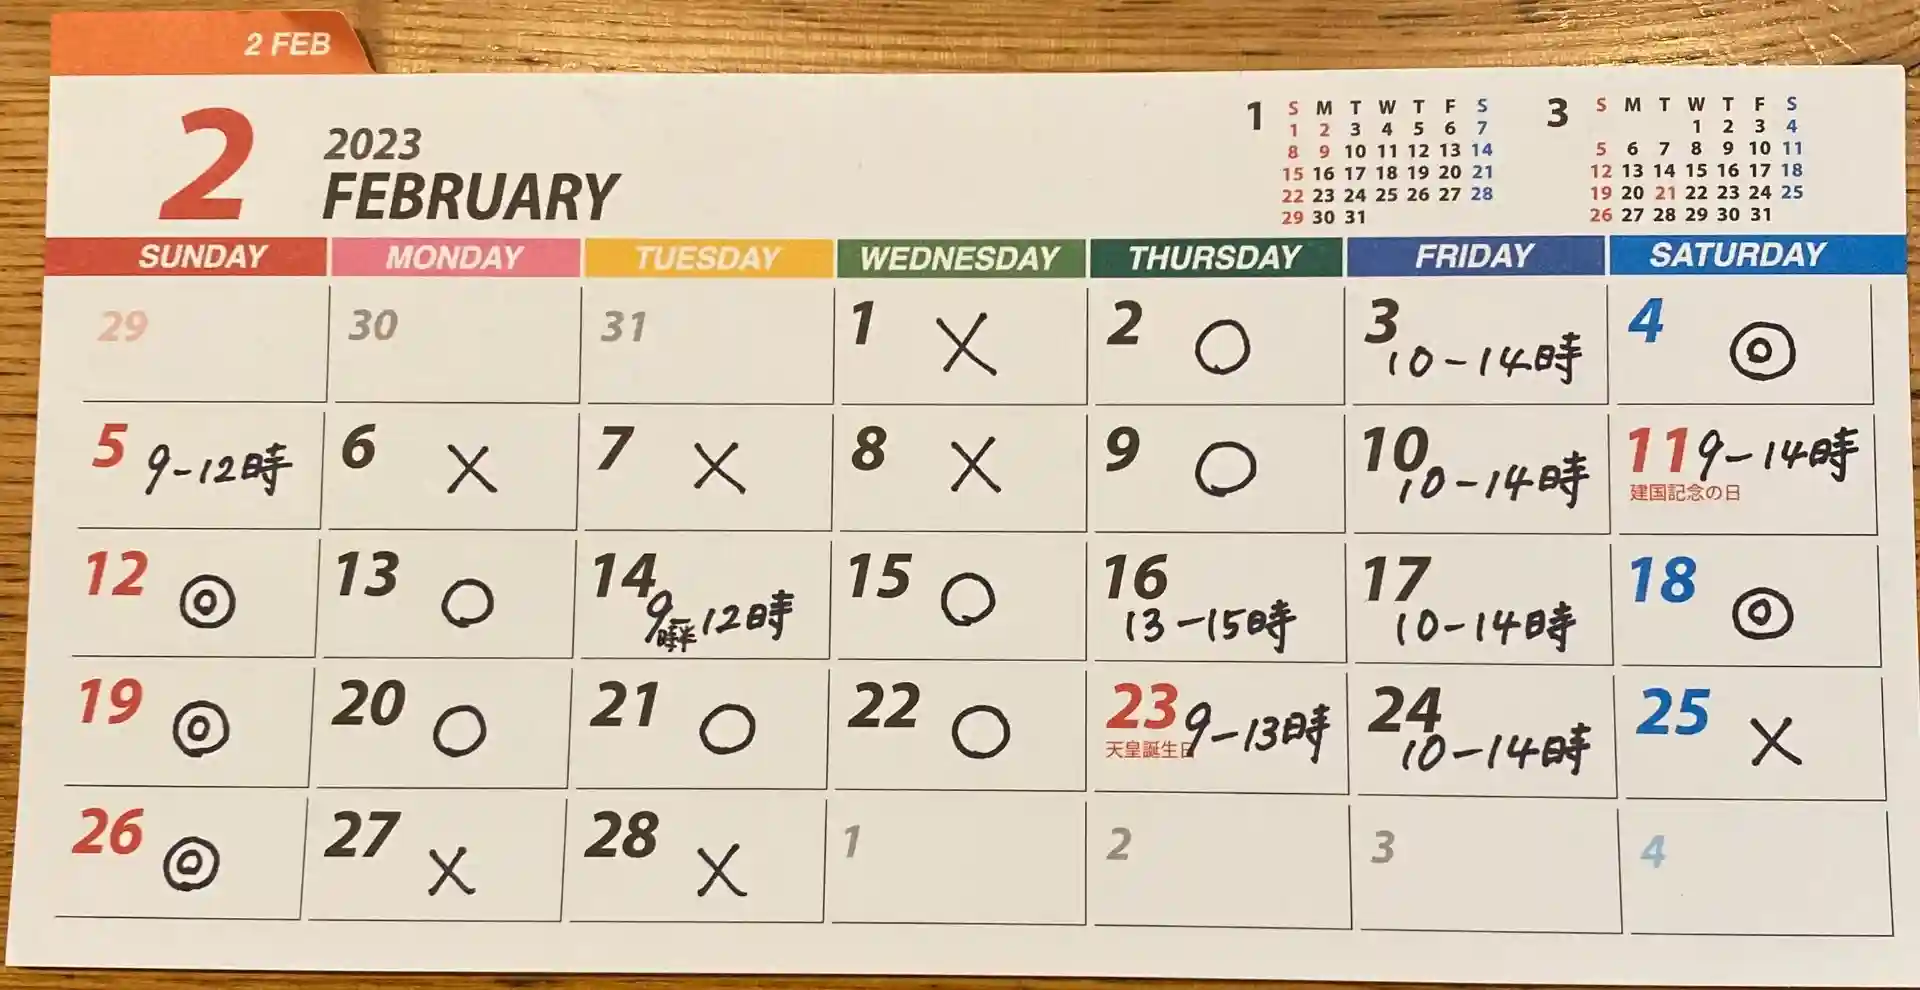 2 FEB
2 2023 FEBRUARY
1
S M T W T F S
1 2 3 4 5 6 7
8 9 10 11 12 13 14
15 16 17 18 19 20 21
22 23 24 25 26 27 28
29 30 31
3
S M T W T F S
1 2 3 4
5 6 7 8 9 10 11
12 13 14 15 16 17 18
19 20 21 22 23 24 25
26 27 28 29 30 31
SUNDAY MONDAY TUESDAY WEDNESDAY THURSDAY FRIDAY SATURDAY
29 30 31 1 × 2 ○ 3 10-14時 4 ◎
5 9-12時 6 × 7 × 8 × 9 ○ 10 10-14時 11 9-14時
建国記念の日
12 ◎ 13 ○ 14 9時半-12時 15 ○ 16 13-15時 17 10-14時 18 ◎
19 ◎ 20 ○ 21 ○ 22 ○ 23 9-13時 24 10-14時 25 ×
天皇誕生日
26 ◎ 27 × 28 × 1 2 3 4